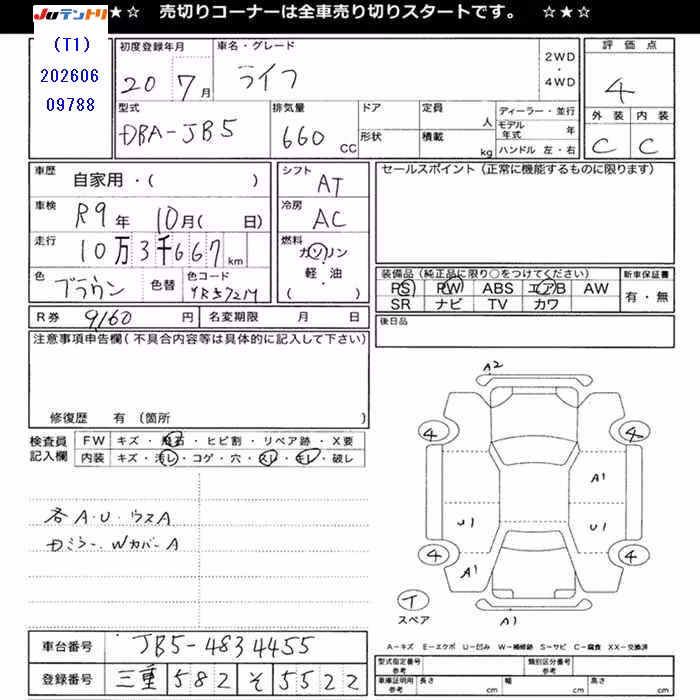 ☆★☆ 売切りコーナーは全車売り切りスタートです。 ☆★☆
JUテントリ
(T1)
202606
09788
初度登録年月 車名・グレード 2WD・4WD 評価点
20 7月 ライフ 4
型式 排気量 ドア 定員 人 ディーラー・並行 外装 内装
DBA-JB5 660 CC 形状 積載 kg モデル年式 年 C C
ハンドル 左・右
車歴 自家用・( ) シフト AT セールスポイント(正常に機能するものに限ります)
車検 R9年 10月( 日) 冷房 AC
走行 10万3千667km 燃料 ガソリン
軽・油
( )
色 ブラウン 色替 色コード YR572M
装備品(純正品に限り○をつけてください) 新車保証書
PS PW ABS エアB AW 有・無
SR ナビ TV カワ
R券 9160 円 名変期限 月 日 後日品
注意事項申告欄(不具合内容等は具体的に記入して下さい)
修復歴 有(箇所 )
検査員記入欄 FW キズ・飛石・ヒビ割・リペア跡・X要
内装 キズ・汚レ・コゲ・穴・スレ・キレ・破レ
各A・U・ウスA
Dミラー、WカバーA
A2
4 4
A1
U1 U1
4 4
A1
T
スペア
A1
A-キズ E-エクボ U-凹み W-補修跡 S-サビ C-腐食 XX-交換済
車台番号 JB5-4834455
登録番号 三重 582 そ 5522
型式指定番号 参考 類別区分番号 参考
車庫証明用 参考 長さ cm 幅 cm 高さ cm